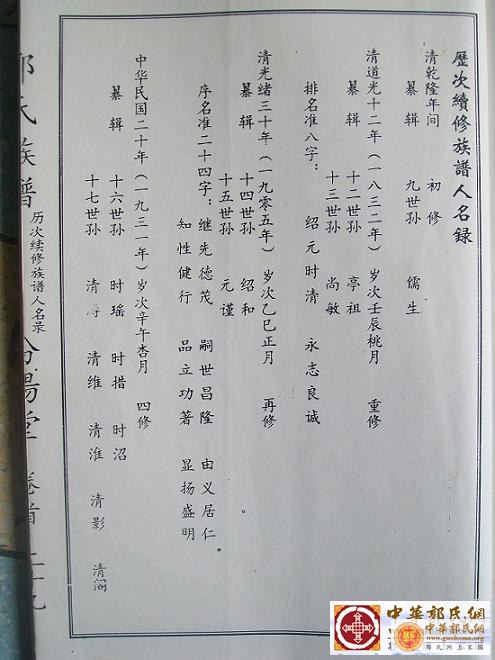 歷次續修族譜人名録
清乾隆年间 初修
纂辑 九世孙 儒生
清道光十二年(一八三二年)岁次壬辰桃月 重修
纂辑 十二世孙 亭祖
十三世孙 尚敏
排名准八字: 绍元时清 永志良诚
清光绪三十年(一九零五年)岁次乙巳正月 再修
纂辑 十四世孙 绍和
十五世孙 元谨
序名准二十四字:继先德茂 嗣世昌隆 由义居仁
知性健行 品立功著 显扬盛明。
中华民国二十年(一九三一年)岁次辛午杏月 四修
纂辑 十六世孙 时瑶 时措 时沼
十七世孙 清 清维 清淮 清影 清阁
郭氏族譜 历次续修族谱人名录 汾陽堂 卷首 二十九
中華郭氏網
中華郭氏網
www.guohome.org